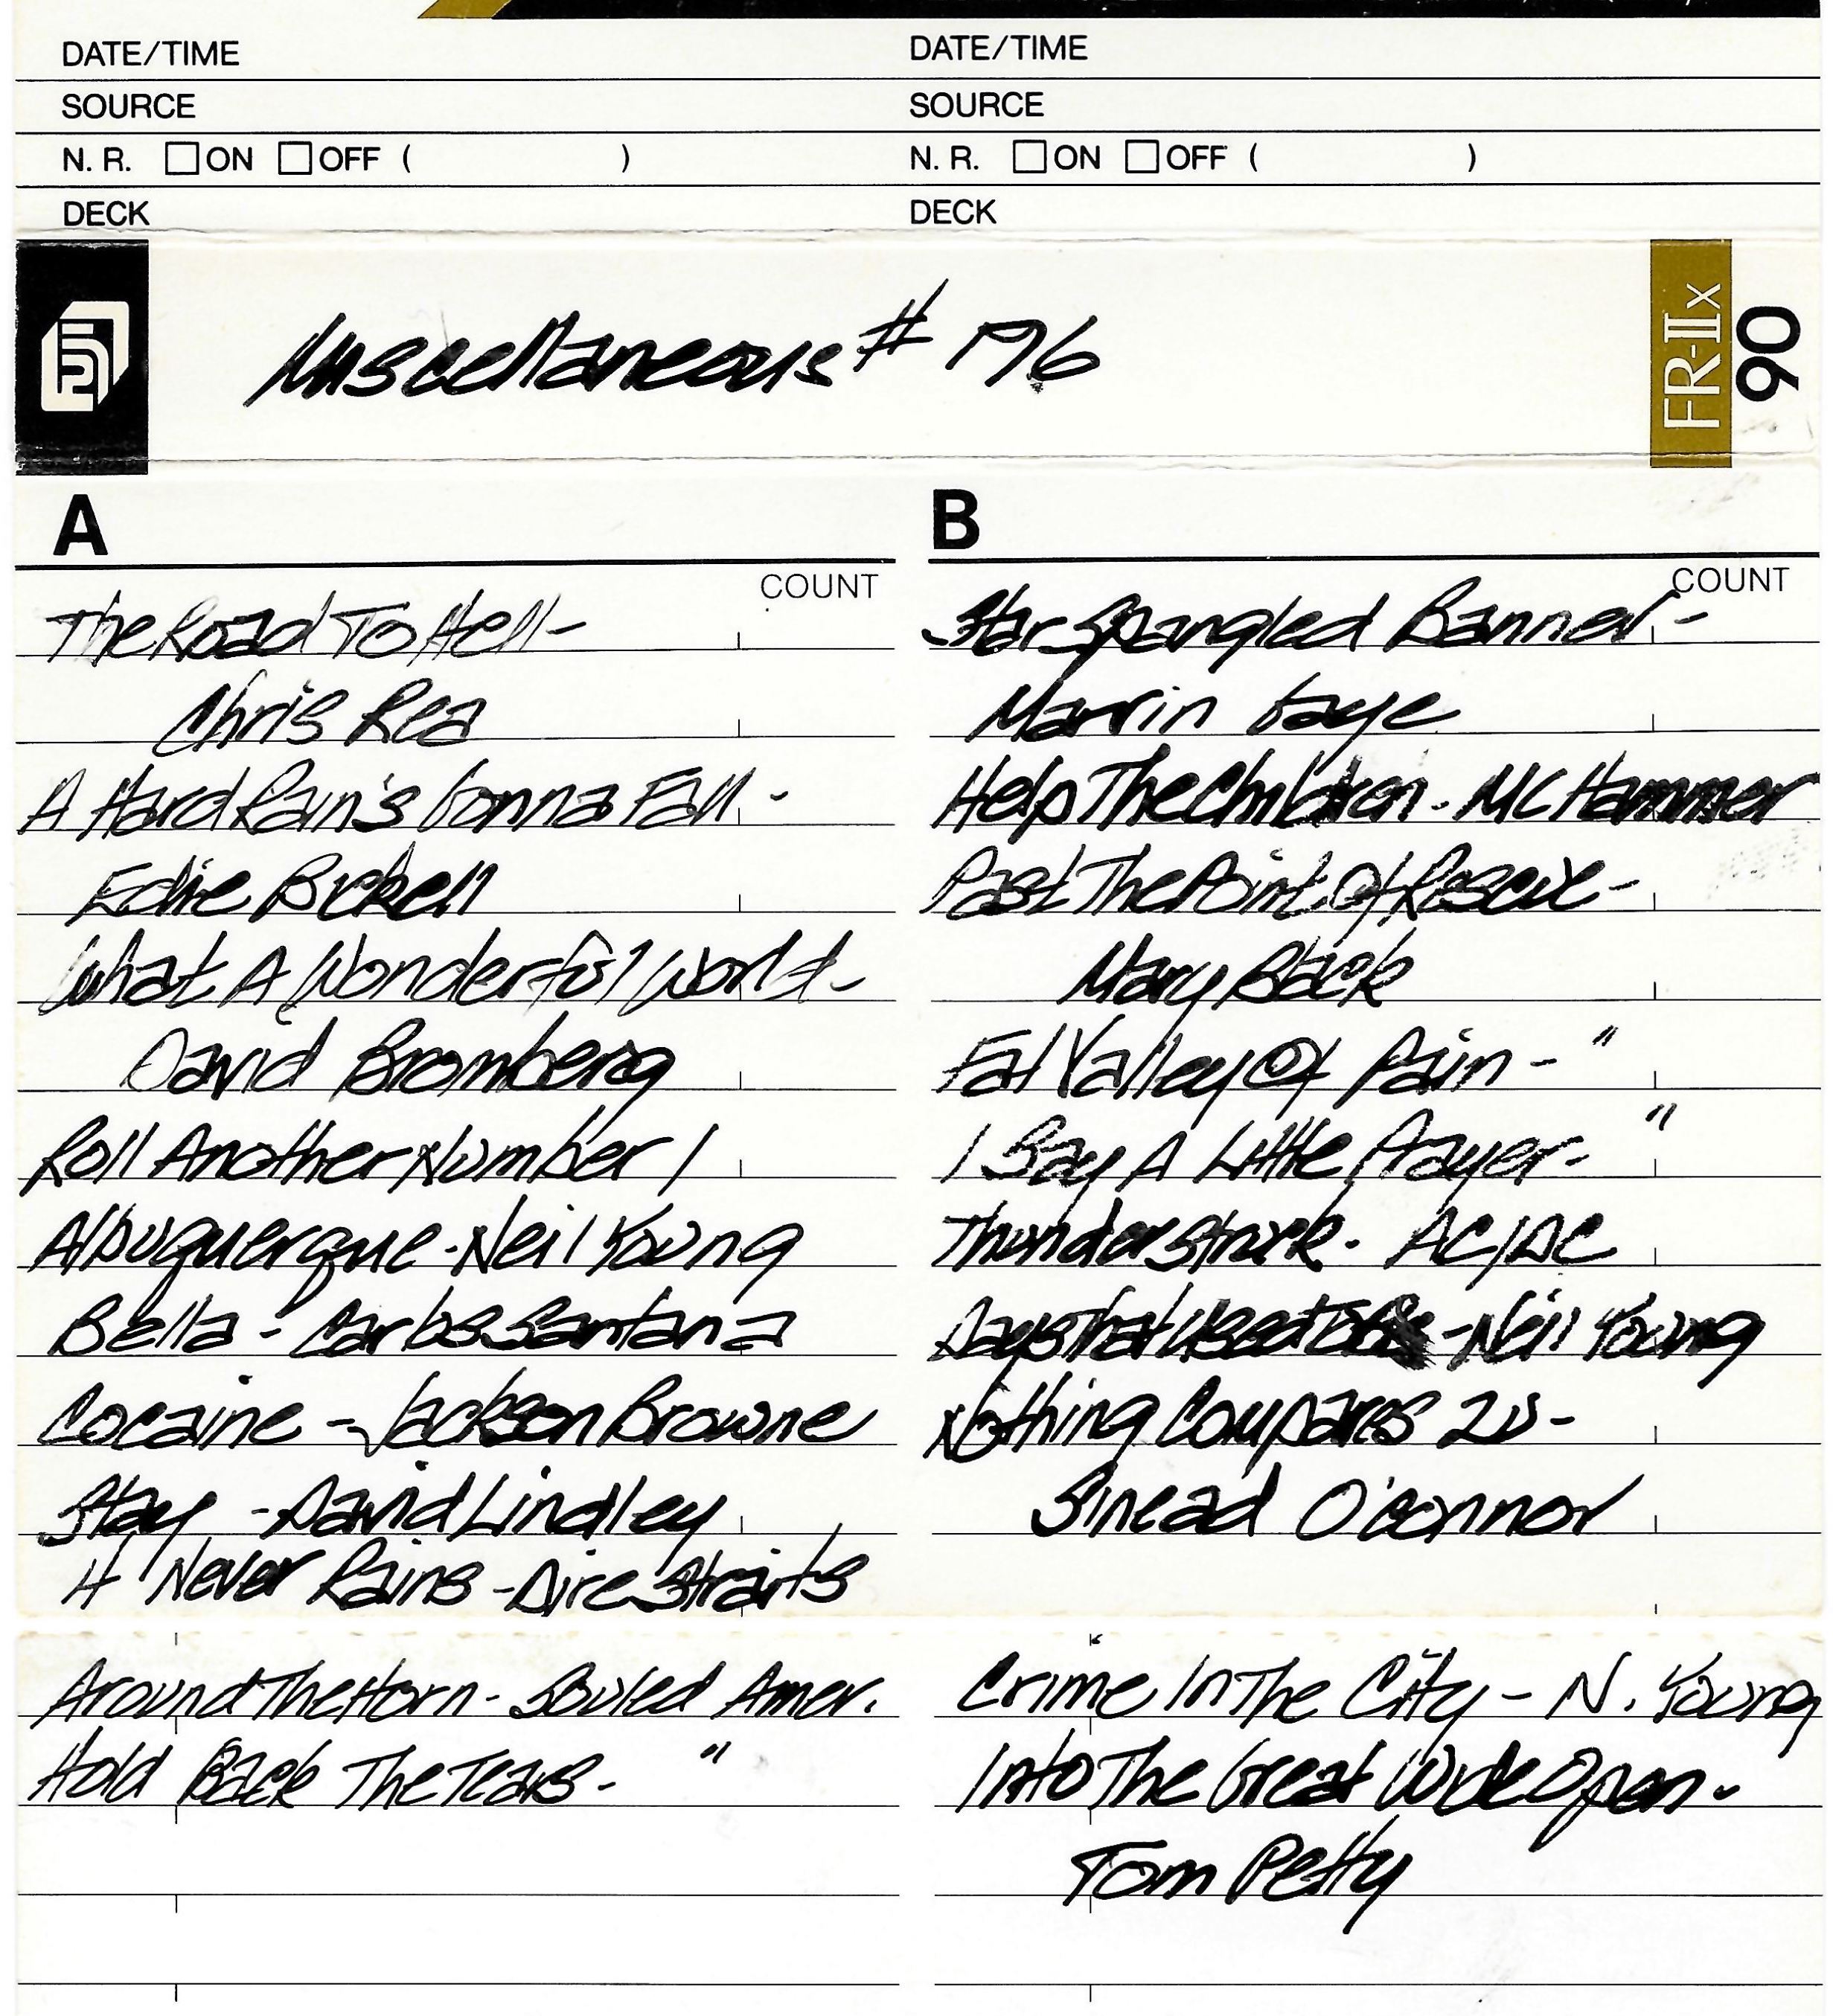 DATE/TIME
SOURCE
N. R. ☐ ON ☐ OFF ( )
DECK
DATE/TIME
SOURCE
N. R. ☐ ON ☐ OFF ( )
DECK
Miscellaneous # 196
FR-IIx
90
A
COUNT
The Road To Hell -
Chris Rea
A Hard Rain's Gonna Fall -
Edie Brickell
What A Wonderful World -
David Bromberg
Roll Another Number /
Albuquerque - Neil Young
Bella - Carlos Santana
Cocaine - Jackson Browne
Stay - David Lindley
It Never Rains - Dire Straits
Around The Horn - Souled Amer.
Hold Back The Tears - "
B
COUNT
Star Spangled Banner -
Marvin Gaye
Help The Children - MC Hammer
Past The Point Of Rescue -
Mary Black
Fat Valley Of Pain - "
I Say A Little Prayer - "
Thunderstruck - AC/DC
Days That Used To Be - Neil Young
Nothing Compares 2U -
Sinead O'Connor
Crime In The City - N. Young
Into The Great Wide Open -
Tom Petty